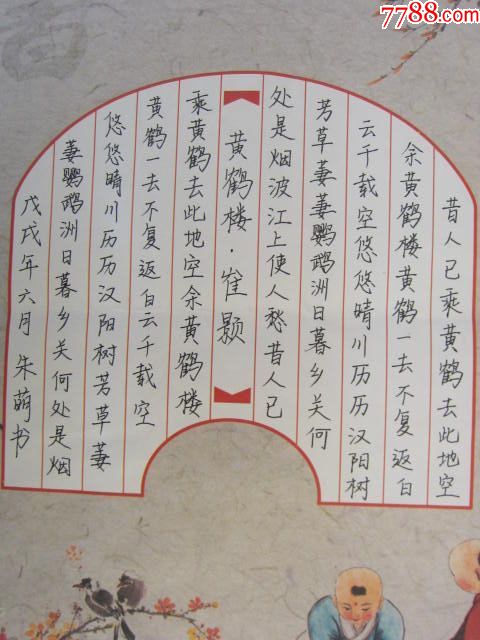 7788.com
昔人已乘黄鹤去此地空
余黄鹤楼黄鹤一去不复返白
云千载空悠悠晴川历历汉阳树
芳草萋萋鹦鹉洲日暮乡关何
处是烟波江上使人愁昔人已
黄鹤楼·崔颢
乘黄鹤去此地空余黄鹤楼
黄鹤一去不复返白云千载空
悠悠晴川历历汉阳树芳草萋
萋鹦鹉洲日暮乡关何处是烟
戊戌年六月朱萌书